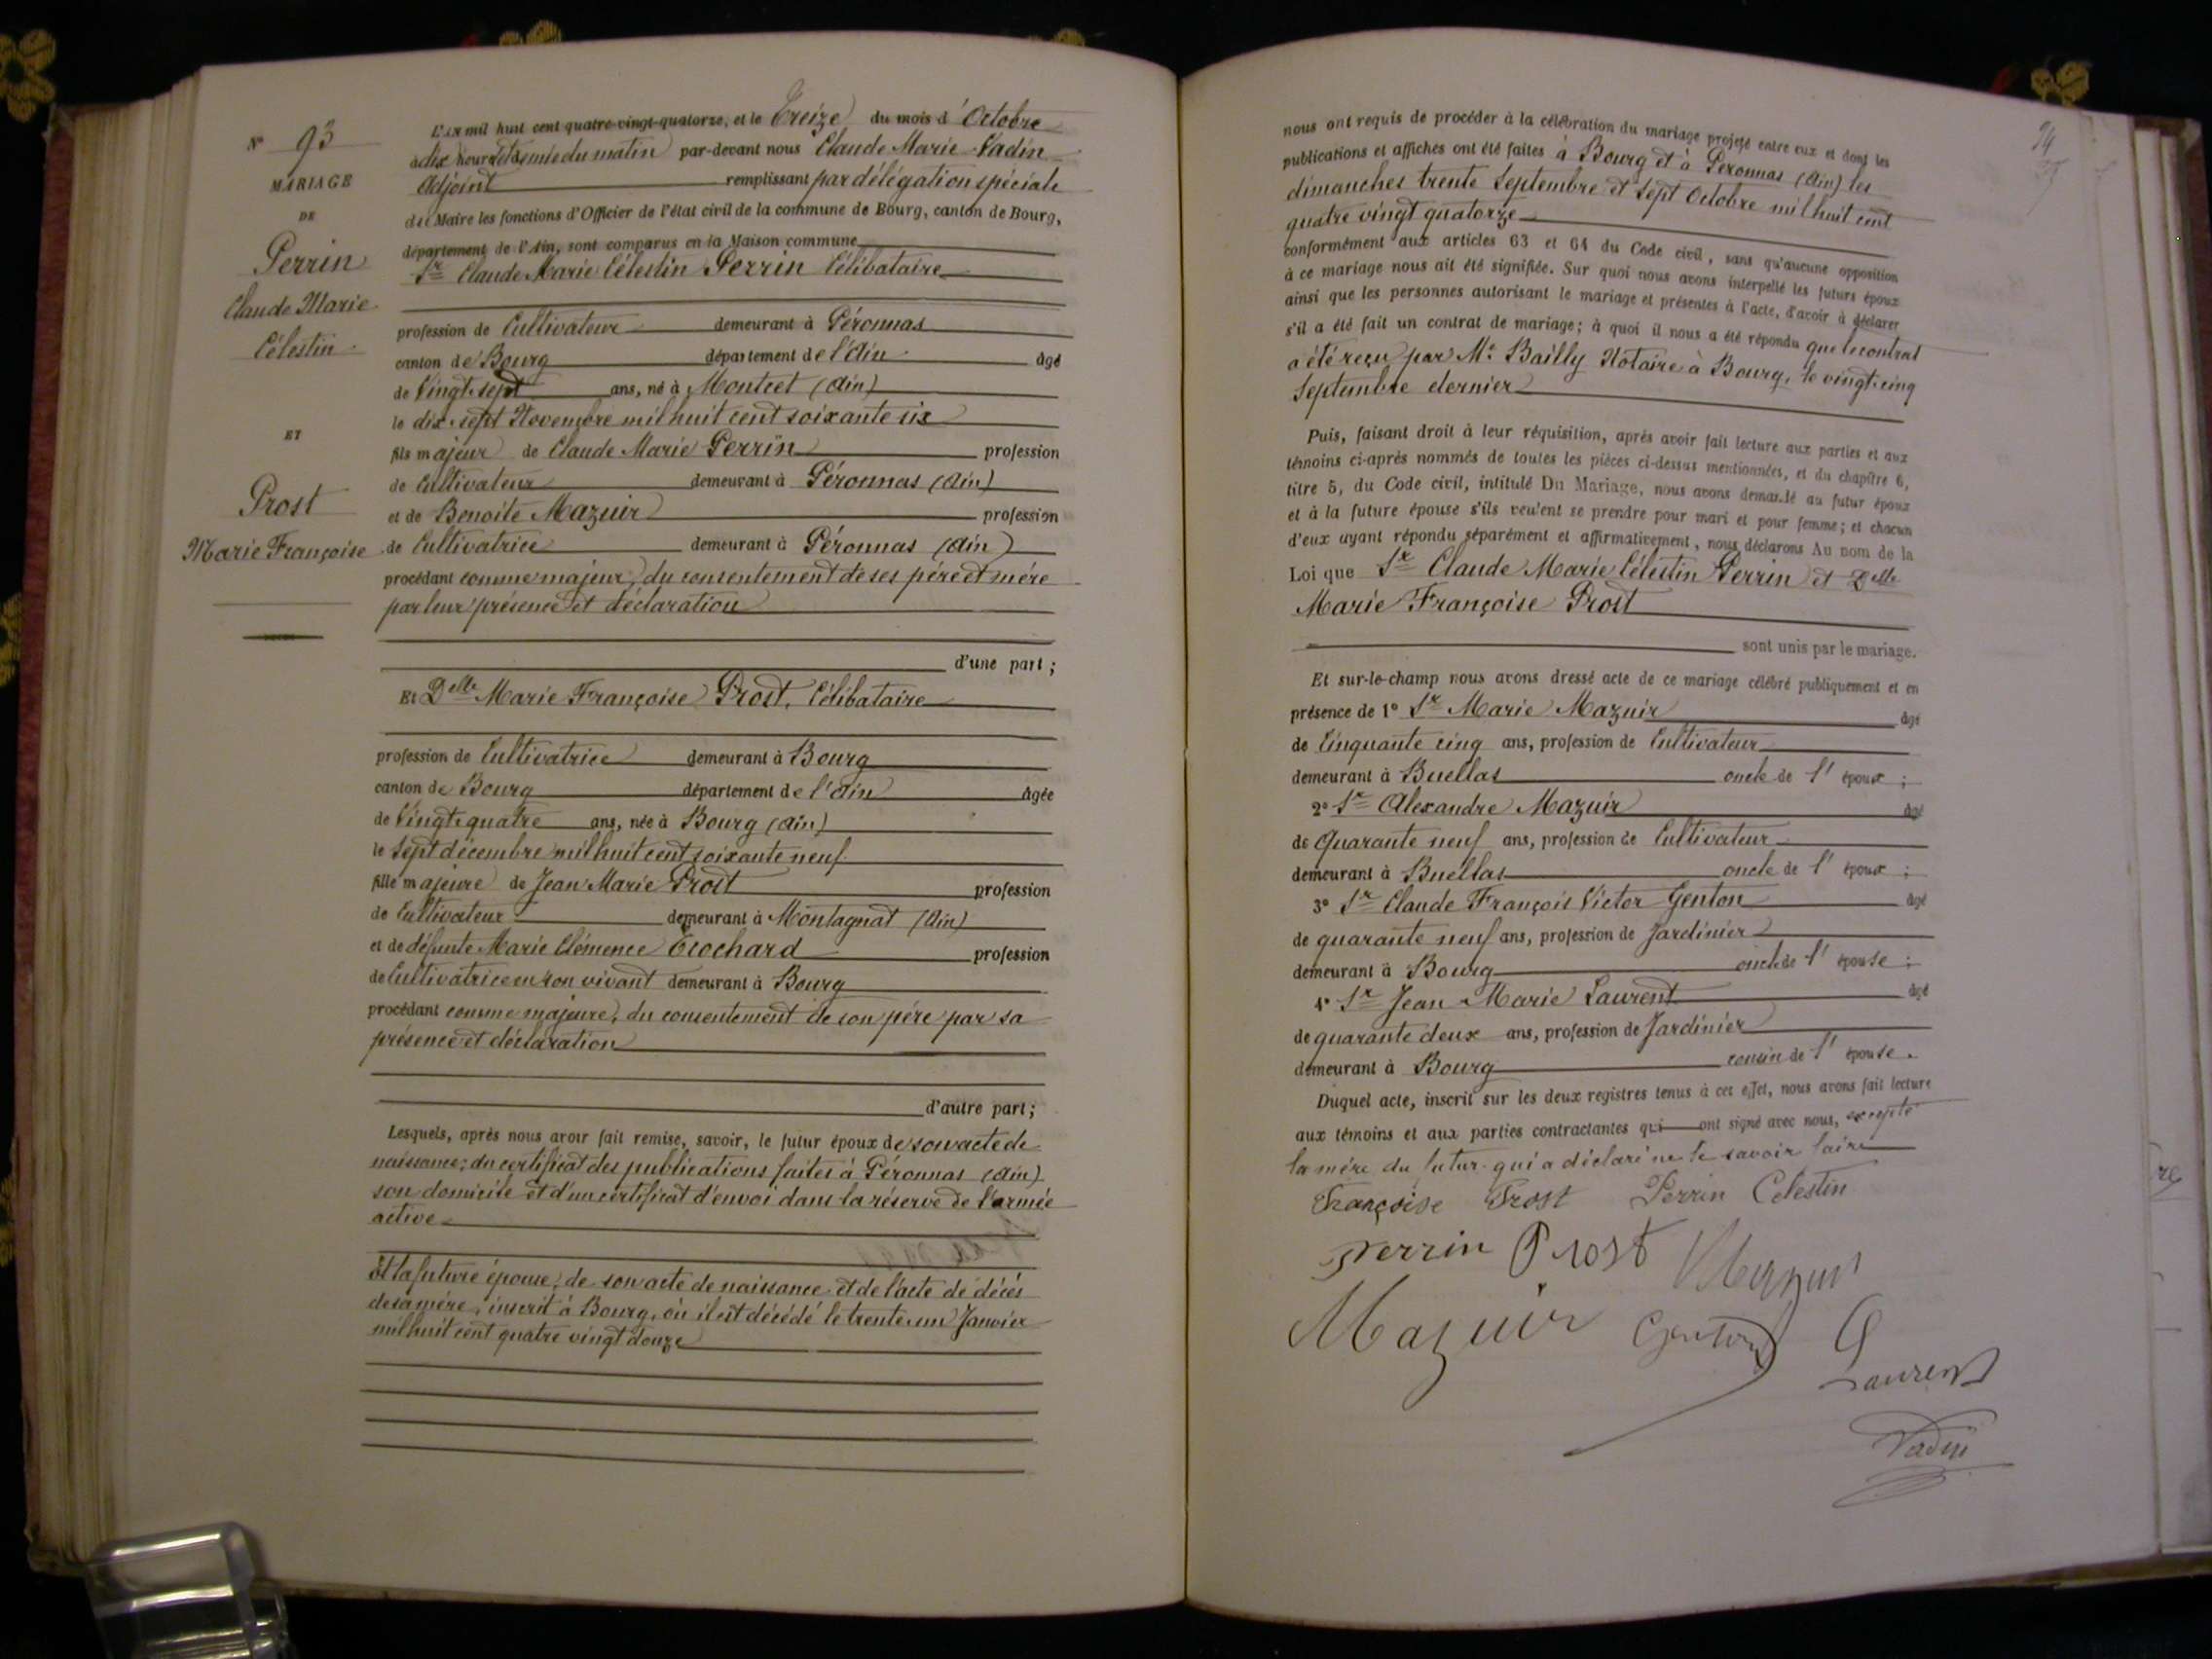 N° 93
MARIAGE
DE
Perrin
Claude Marie
Célestin
ET
Prost
Marie Françoise
L'an mil huit cent quatre-vingt-quatorze, et le Treize du mois d'Octobre
à dix heures et demie du matin par-devant nous Claude Marie Vadin
Adjoint remplissant par délégation spéciale
du Maire les fonctions d'Officier de l'état civil de la commune de Bourg, canton de Bourg,
département de l'Ain, sont comparus en la Maison commune
Sr Claude Marie Célestin Perrin Célibataire
profession de Cultivateur demeurant à Péronnas
canton de Bourg département de l'Ain âgé
de Vingt-sept ans, né à Montcet (Ain)
le dix-sept Novembre mil huit cent soixante six
fils majeur de Claude Marie Perrin profession
de Cultivateur demeurant à Péronnas (Ain)
et de Benoite Mazuir profession
de Cultivatrice demeurant à Péronnas (Ain)
procédant comme majeur, du consentement de ses père et mère
par leur présence et déclaration
d'une part ;
Et Delle Marie Françoise Prost, Célibataire
profession de Cultivatrice demeurant à Bourg
canton de Bourg département de l'Ain âgée
de Vingt-quatre ans, née à Bourg (Ain)
le Sept décembre mil huit cent soixante neuf
fille majeure de Jean Marie Prost profession
de Cultivateur demeurant à Montagnat (Ain)
et de défunte Marie Clémence Ecochard profession
de Cultivatrice en son vivant demeurant à Bourg
procédant comme majeure, du consentement de son père par sa
présence et déclaration
d'autre part ;
Lesquels, après nous avoir fait remise, savoir, le futur époux de son acte de
naissance ; du certificat des publications faites à Péronnas (Ain)
son domicile et d'un certificat d'envoi dans la réserve de l'armée
active
Et la future épouse, de son acte de naissance et de l'acte de décès
de sa mère, inscrit à Bourg, où il est décédé le trente un Janvier
mil huit cent quatre vingt douze
94
nous ont requis de procéder à la célébration du mariage projeté entre eux et dont les
publications et affiches ont été faites à Bourg et à Péronnas (Ain) les
dimanches trente Septembre et Sept Octobre mil huit cent
quatre vingt quatorze
conformément aux articles 63 et 64 du Code civil, sans qu'aucune opposition
à ce mariage nous ait été signifiée. Sur quoi nous avons interpellé les futurs époux
ainsi que les personnes autorisant le mariage et présentes à l'acte, d'avoir à déclarer
s'il a été fait un contrat de mariage ; à quoi il nous a été répondu que le contrat
a été reçu par Me Bailly Notaire à Bourg, le vingt-cinq
Septembre dernier
Puis, faisant droit à leur réquisition, après avoir fait lecture aux parties et aux
témoins ci-après nommés de toutes les pièces ci-dessus mentionnées, et du chapître 6,
titre 5, du Code civil, intitulé Du Mariage, nous avons demandé au futur époux
et à la future épouse s'ils veulent se prendre pour mari et pour femme ; et chacun
d'eux ayant répondu séparément et affirmativement, nous déclarons Au nom de la
Loi que Sr Claude Marie Célestin Perrin et Delle
Marie Françoise Prost
sont unis par le mariage.
Et sur-le-champ nous avons dressé acte de ce mariage célébré publiquement et en
présence de 1° Sr Marie Mazuir âgé
de Cinquante cinq ans, profession de Cultivateur
demeurant à Buellas oncle de l'époux ;
2° Sr Alexandre Mazuir âgé
de Quarante neuf ans, profession de Cultivateur
demeurant à Buellas oncle de l'époux ;
3° Sr Claude François Victor Genton âgé
de quarante neuf ans, profession de Jardinier
demeurant à Bourg oncle de l'épouse ;
4° Sr Jean Marie Laurent âgé
de quarante deux ans, profession de Jardinier
demeurant à Bourg cousin de l'épouse.
Duquel acte, inscrit sur les deux registres tenus à cet effet, nous avons fait lecture
aux témoins et aux parties contractantes qui ont signé avec nous, excepté
la mère du futur qui a déclaré ne le savoir faire
Françoise Prost Perrin Celestin
Perrin Prost Mazuir
Mazuir Genton
Laurent
Vadin